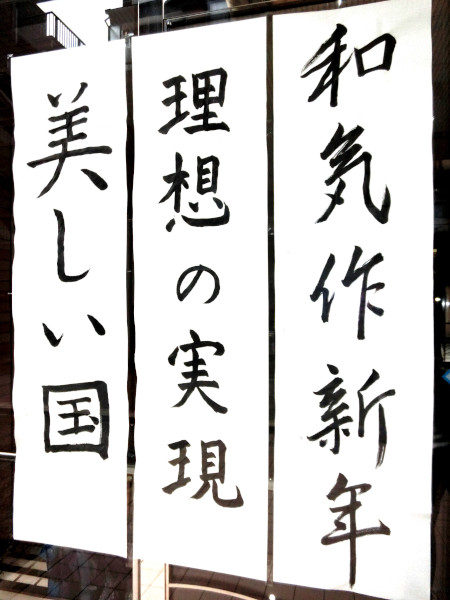 和気作新年
理想の実現
美しい国